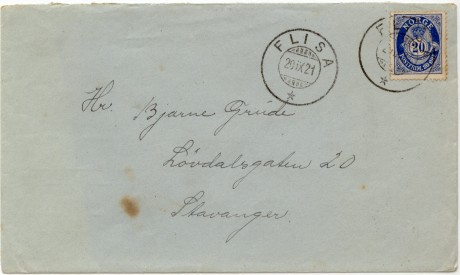 FLISA
29 IX 21
F
NORGE
20
POSTFRIM. 20 ØRE
Hr. Bjarne Grude
Lövdalsgaten 20
Stavanger.